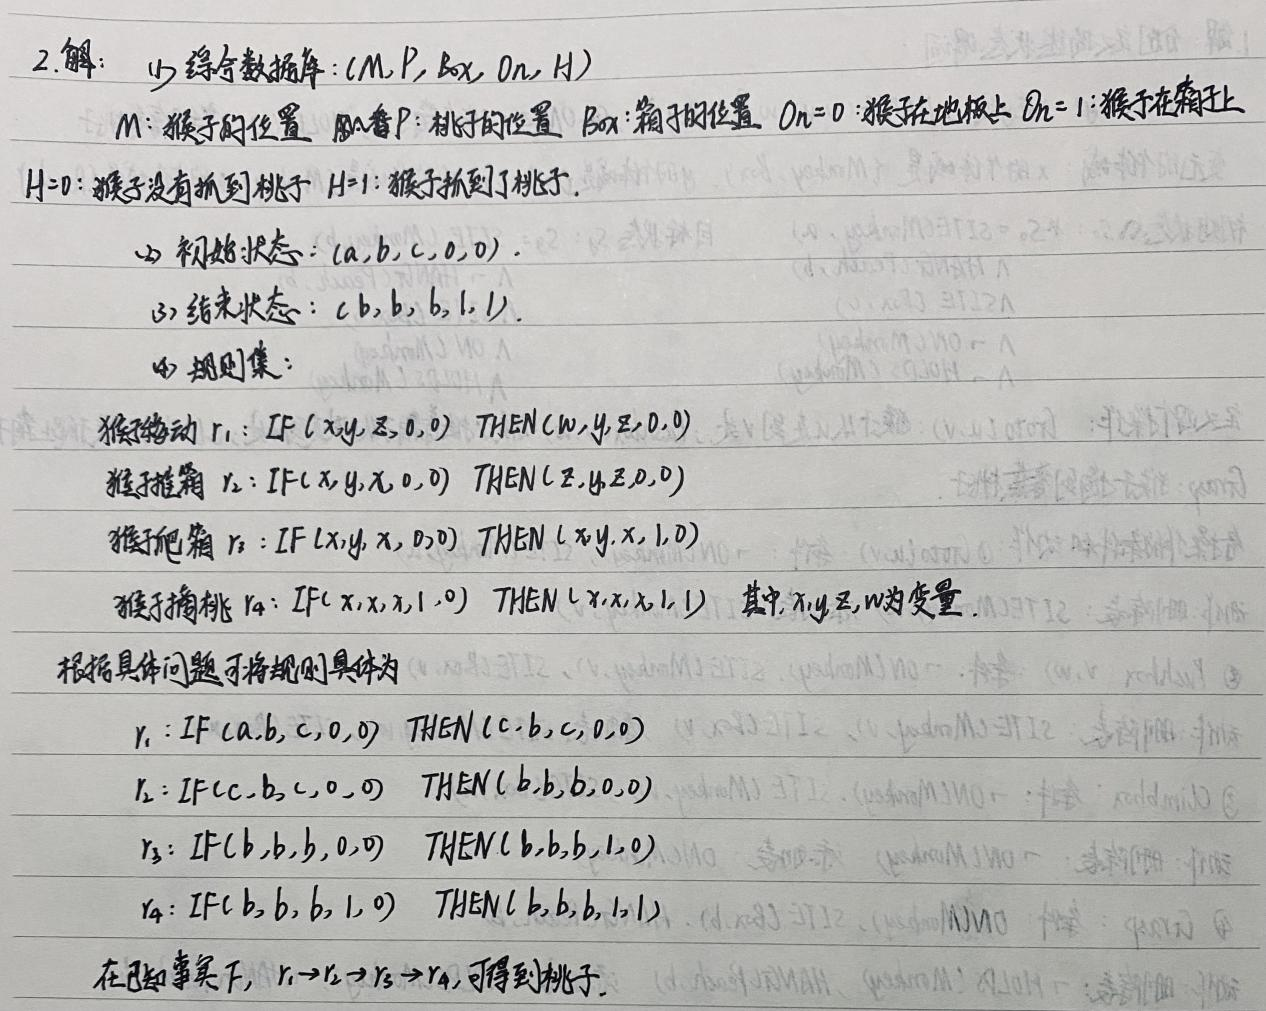 2.解: (1) 综合数据库:(M, P, Box, On, H)
M:猴子的位置 P:桃子的位置 Box:箱子的位置 On=0:猴子在地板上 On=1:猴子在箱子上
H=0:猴子没有抓到桃子 H=1:猴子抓到了桃子.
(2) 初始状态:(a,b,c,0,0).
(3) 结束状态:(b,b,b,1,1).
(4) 规则集:
猴子移动 r₁: IF(x,y,z,0,0) THEN(w,y,z,0,0)
猴子推箱 r₂: IF(x,y,x,0,0) THEN(z,y,z,0,0)
猴子爬箱 r₃: IF(x,y,x,0,0) THEN(x,y,x,1,0)
猴子摘桃 r₄: IF(x,x,x,1,0) THEN(x,x,x,1,1) 其中,x,y,z,w为变量.
根据具体问题可将规则具体为
r₁: IF(a,b,c,0,0) THEN(c,b,c,0,0)
r₂: IF(c,b,c,0,0) THEN(b,b,b,0,0)
r₃: IF(b,b,b,0,0) THEN(b,b,b,1,0)
r₄: IF(b,b,b,1,0) THEN(b,b,b,1,1)
在已知事实下, r₁→r₂→r₃→r₄,可得到桃子.